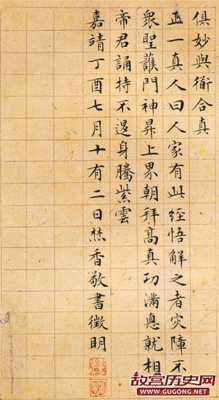 俱妙與衜合真
正一真人曰人家有此經悟解之者灾障不
衆聖護門神昇上界朝拜高真功滿惪就相
帝君誦持不退身騰紫雲
嘉靖丁酉七月十有二日焚香敬書徵明
故宫历史网
WWW.GUGONG.NET